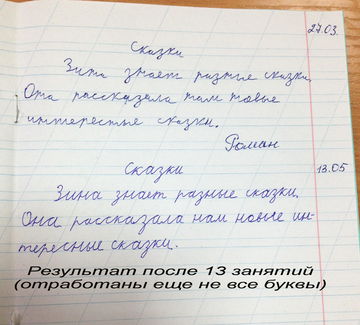 27.03.
Сказки
Зина знает разные сказки.
Она рассказала нам новые
интересные сказки.
Роман
Сказки 13.05
Зина знает разные сказки.
Она рассказала нам новые ин-
тересные сказки.
Результат после 13 занятий
(отработаны еще не все буквы)